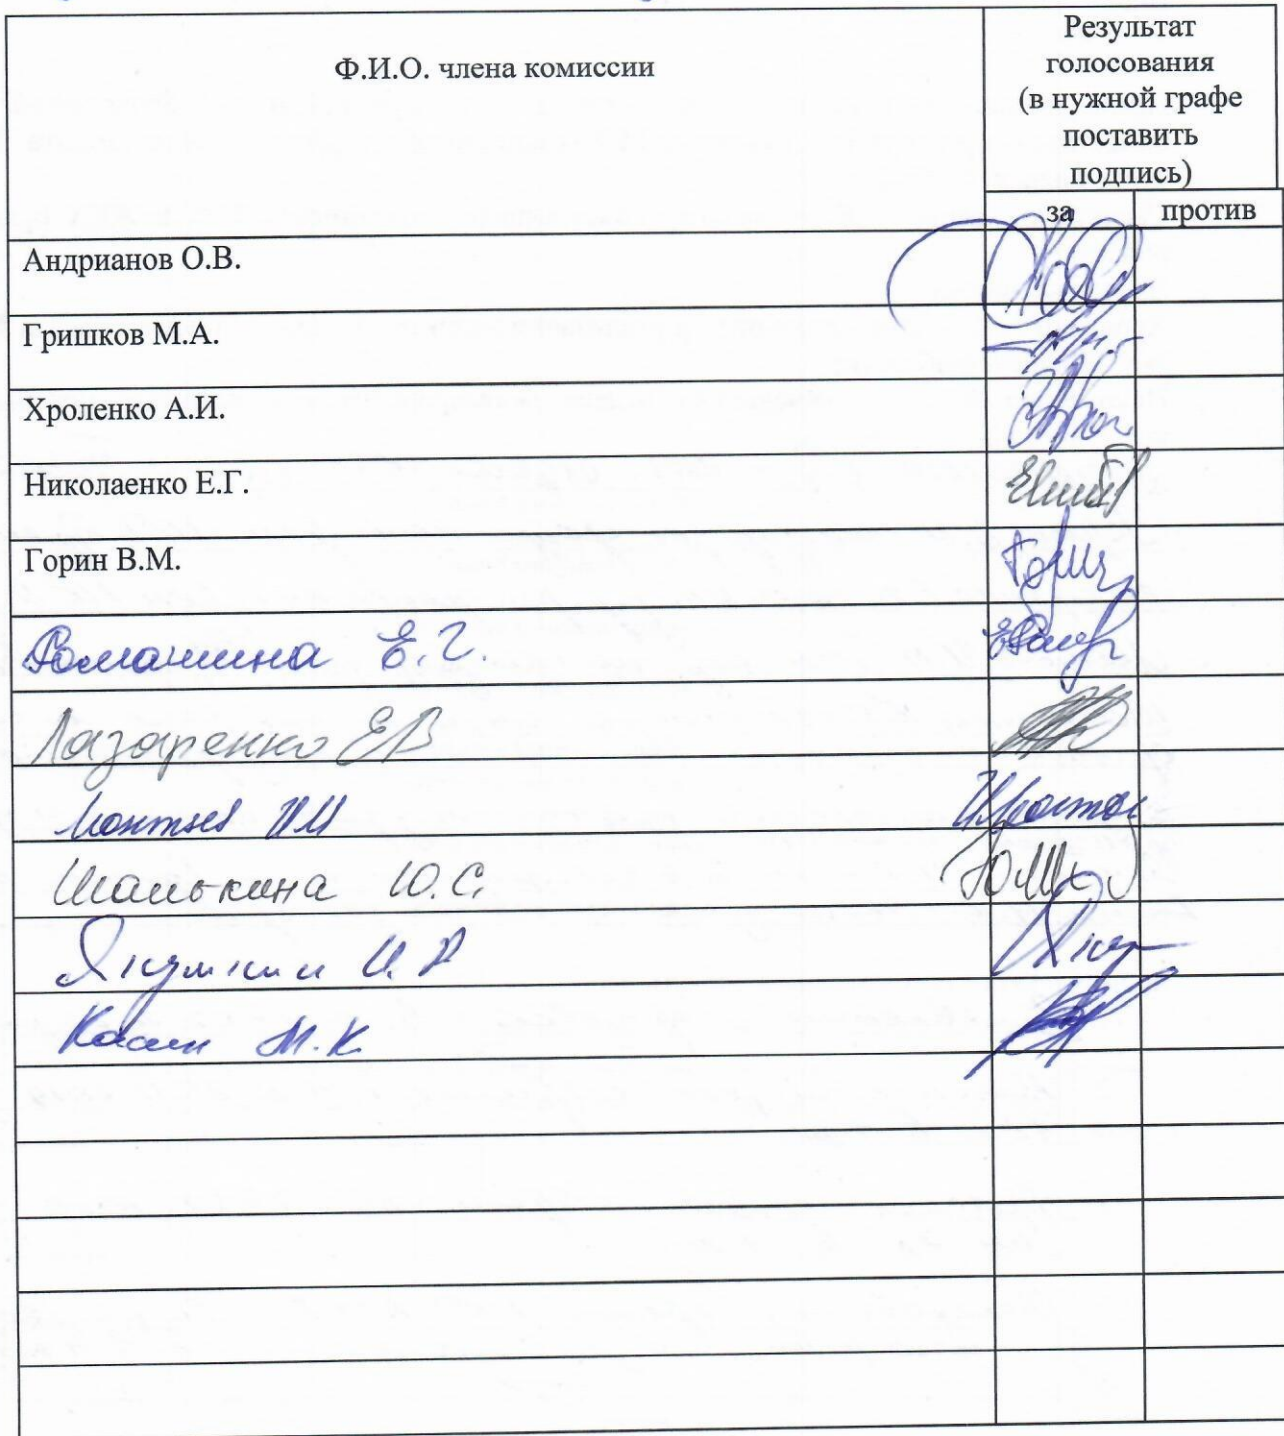 Ф.И.О. члена комиссии
Результат
голосования
(в нужной графе
поставить
подпись)
за
против
Андрианов О.В.
Гришков М.А.
Хроленко А.И.
Николаенко Е.Г.
Горин В.М.
Ромашина Е.Г.
Лазаренко ЕВ
ИМ
Шанькина Ю.С.
Якушкин И.А
Касин М.К.